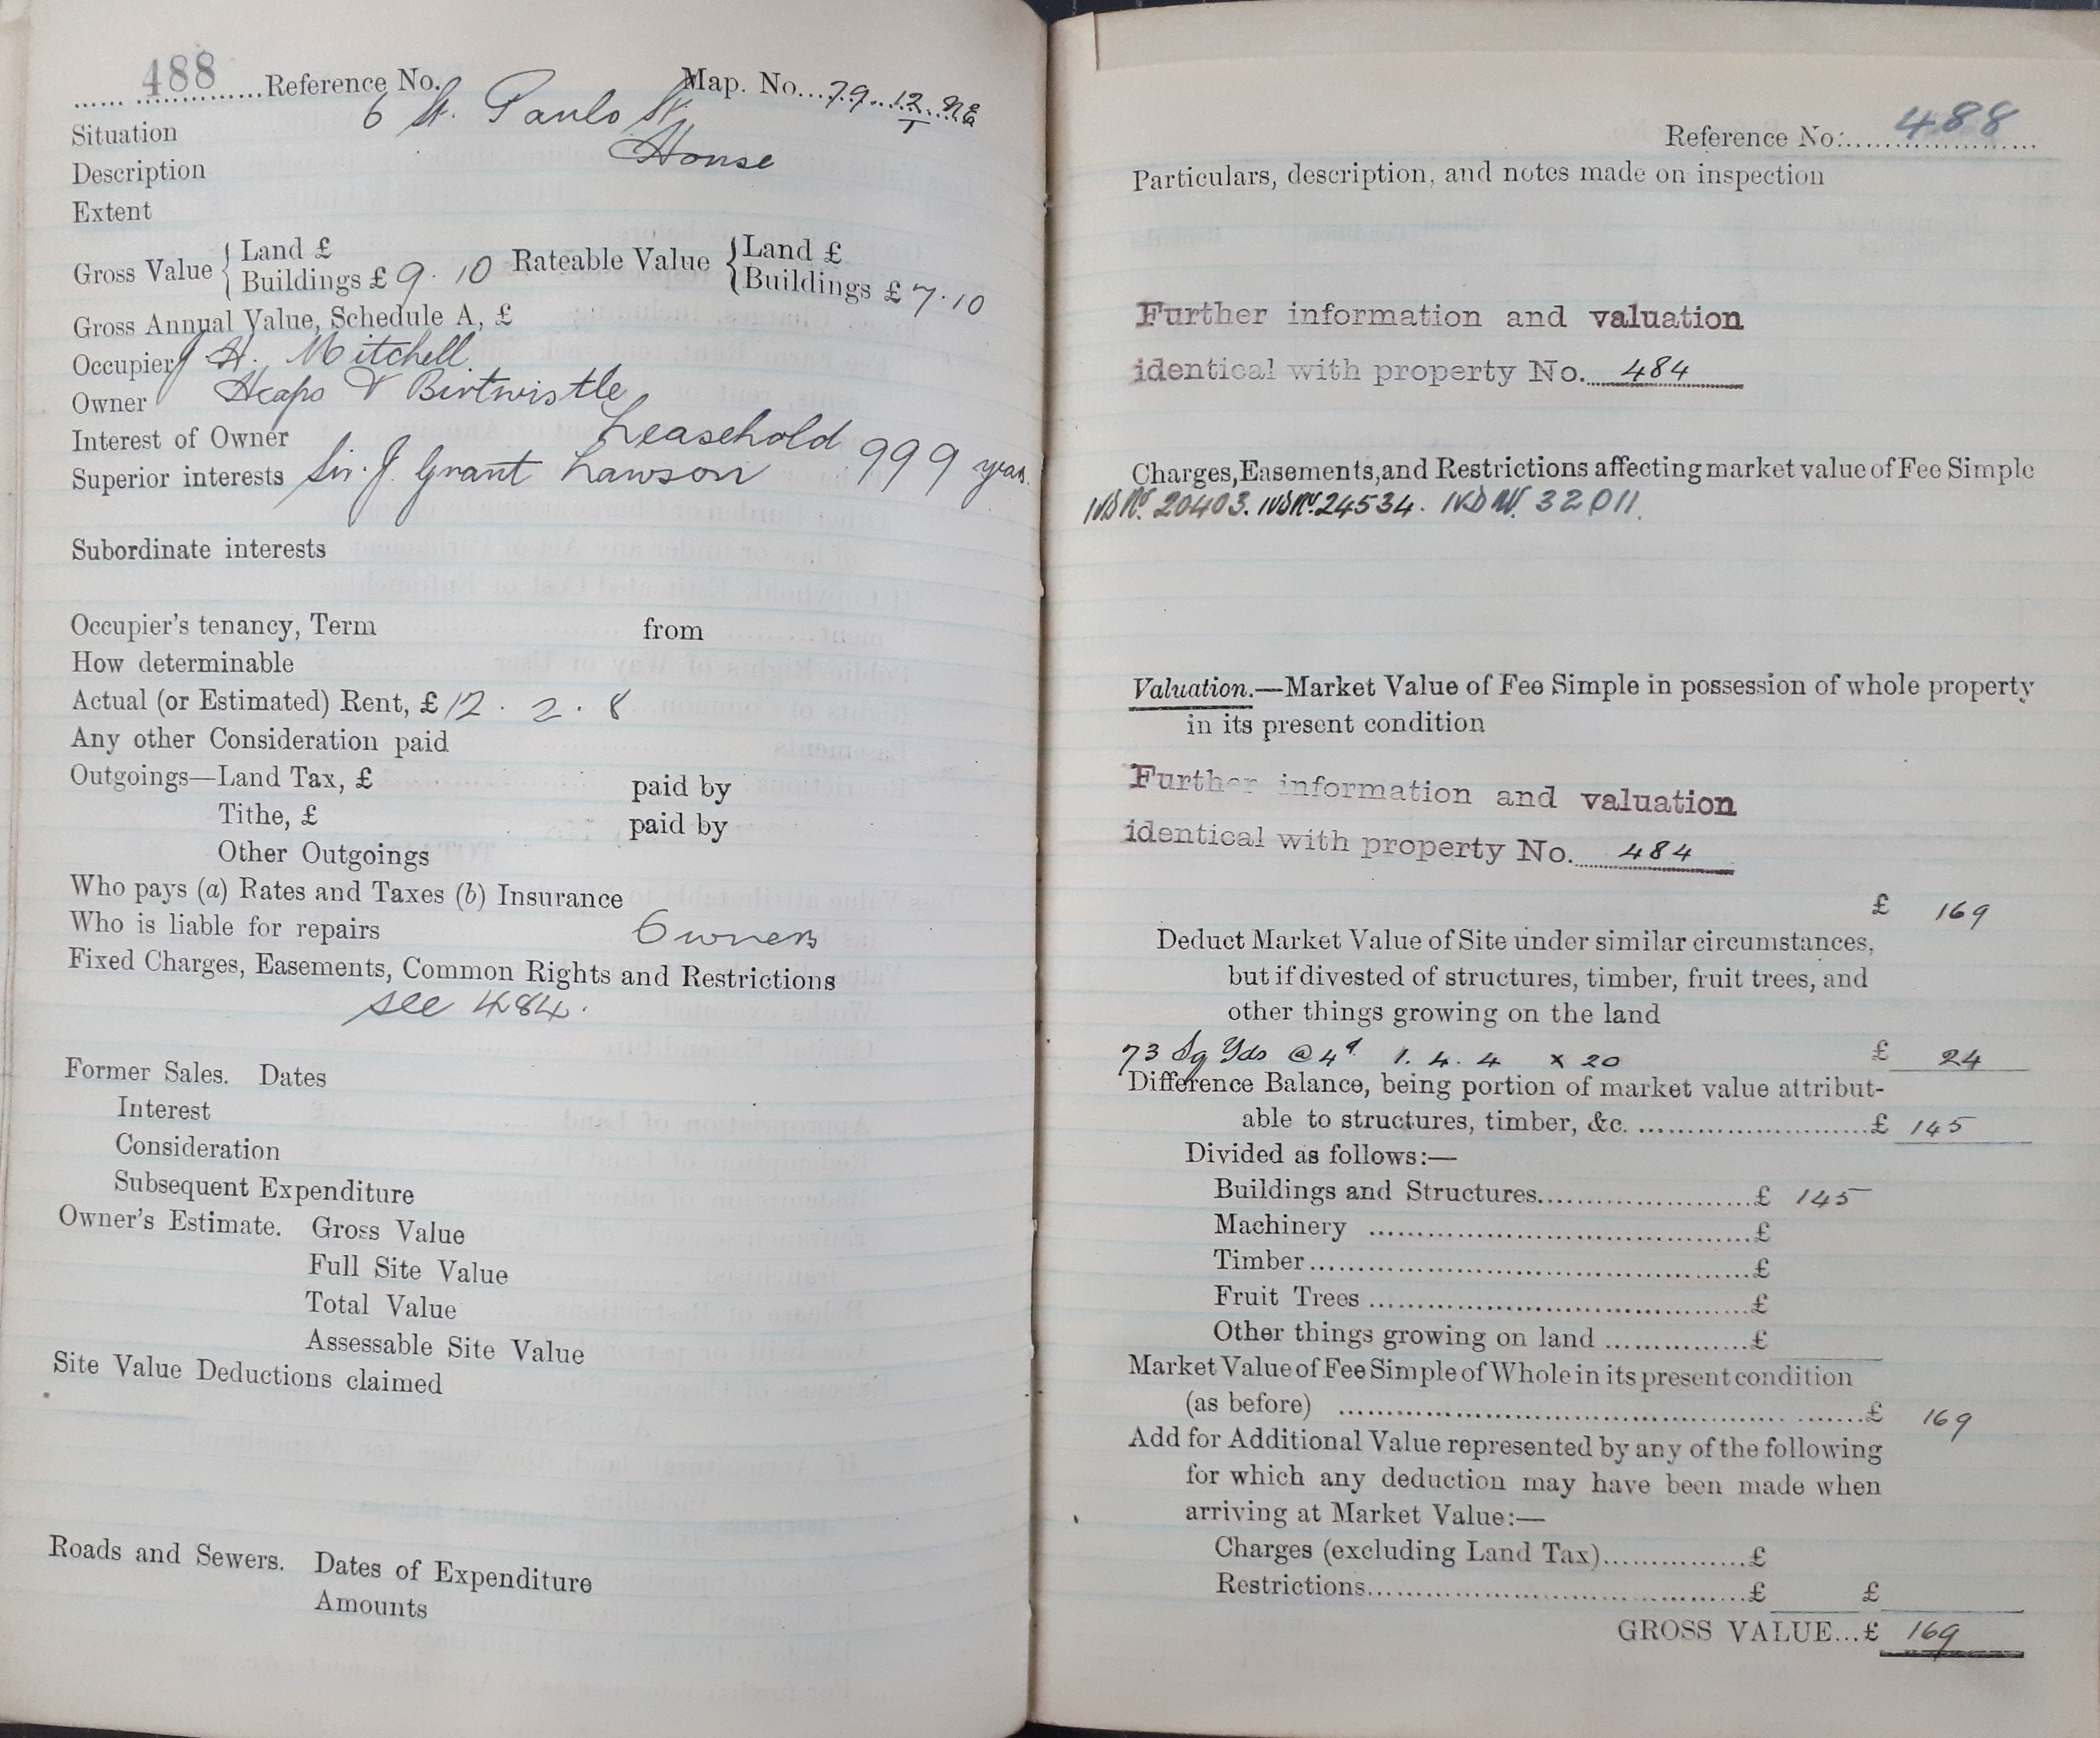 488 Reference No. Map. No. 79 12 NE
1
Situation 6 St. Pauls St.
Description House
Extent
Gross Value { Land £ Rateable Value { Land £
Buildings £ 9. 10 Buildings £ 7.10
Gross Annual Value, Schedule A, £
Occupier H. Mitchell
Owner Heaps & Birtwistle
Interest of Owner Leasehold 999 years
Superior interests Sir. J. Grant Lawson
Subordinate interests
Occupier's tenancy, Term from
How determinable
Actual (or Estimated) Rent, £ 12 . 2 . 8
Any other Consideration paid
Outgoings—Land Tax, £ paid by
Tithe, £ paid by
Other Outgoings
Who pays (a) Rates and Taxes (b) Insurance
Who is liable for repairs Owners
Fixed Charges, Easements, Common Rights and Restrictions
see 484.
Former Sales. Dates
Interest
Consideration
Subsequent Expenditure
Owner's Estimate. Gross Value
Full Site Value
Total Value
Assessable Site Value
Site Value Deductions claimed
Roads and Sewers. Dates of Expenditure
Amounts
Reference No: 488
Particulars, description, and notes made on inspection
Further information and valuation
identical with property No. 484
Charges, Easements, and Restrictions affecting market value of Fee Simple
IVD No. 20403. IVD No. 24534. IVD No. 32011.
Valuation.—Market Value of Fee Simple in possession of whole property
in its present condition
Further information and valuation
identical with property No. 484
£ 169
Deduct Market Value of Site under similar circumstances,
but if divested of structures, timber, fruit trees, and
other things growing on the land
73 Sq Yds @ 4d. 1. 4. 4 x 20 £ 24
Difference Balance, being portion of market value attribut-
able to structures, timber, &c. £ 145
Divided as follows:—
Buildings and Structures £ 145
Machinery £
Timber £
Fruit Trees £
Other things growing on land £
Market Value of Fee Simple of Whole in its present condition
(as before) £ 169
Add for Additional Value represented by any of the following
for which any deduction may have been made when
arriving at Market Value:—
Charges (excluding Land Tax) £
Restrictions £ £
GROSS VALUE...£ 169